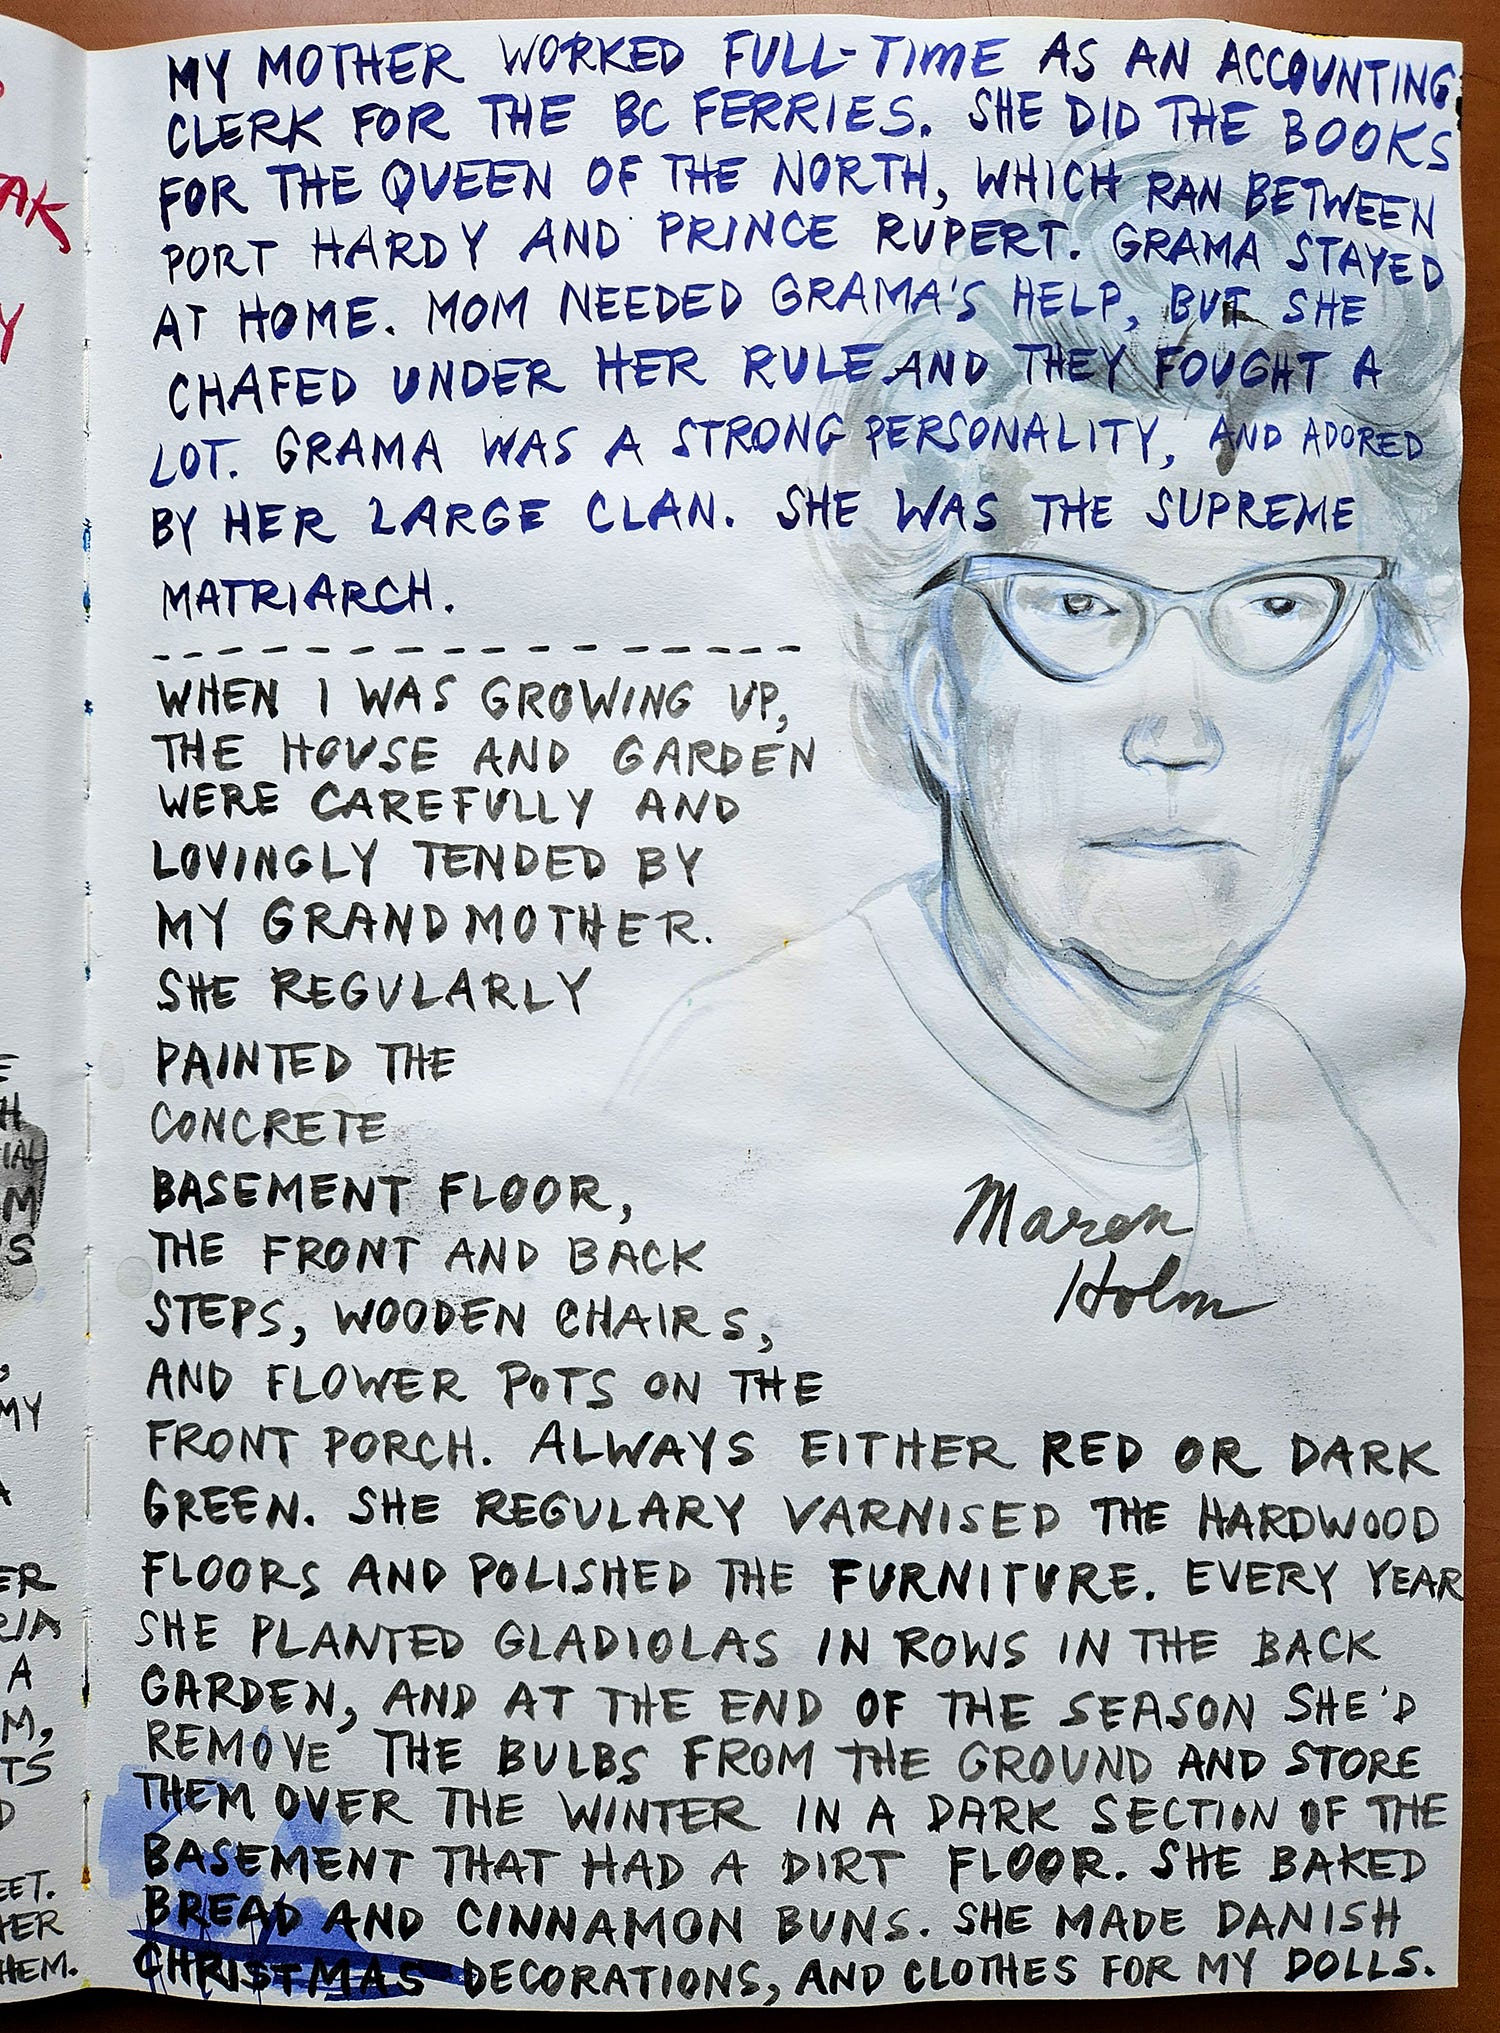 MY MOTHER WORKED FULL-TIME AS AN ACCOUNTING
CLERK FOR THE BC FERRIES. SHE DID THE BOOKS
FOR THE QUEEN OF THE NORTH, WHICH RAN BETWEEN
PORT HARDY AND PRINCE RUPERT. GRAMA STAYED
AT HOME. MOM NEEDED GRAMA'S HELP, BUT SHE
CHAFED UNDER HER RULE AND THEY FOUGHT A
LOT. GRAMA WAS A STRONG PERSONALITY, AND ADORED
BY HER LARGE CLAN. SHE WAS THE SUPREME
MATRIARCH.
WHEN I WAS GROWING UP,
THE HOUSE AND GARDEN
WERE CAREFULLY AND
LOVINGLY TENDED BY
MY GRANDMOTHER.
SHE REGULARLY
PAINTED THE
CONCRETE
BASEMENT FLOOR,
THE FRONT AND BACK
STEPS, WOODEN CHAIRS,
AND FLOWER POTS ON THE
FRONT PORCH. ALWAYS EITHER RED OR DARK
GREEN. SHE REGULARY VARNISED THE HARDWOOD
FLOORS AND POLISHED THE FURNITURE. EVERY YEAR
SHE PLANTED GLADIOLAS IN ROWS IN THE BACK
GARDEN, AND AT THE END OF THE SEASON SHE'D
REMOVE THE BULBS FROM THE GROUND AND STORE
THEM OVER THE WINTER IN A DARK SECTION OF THE
BASEMENT THAT HAD A DIRT FLOOR. SHE BAKED
BREAD AND CINNAMON BUNS. SHE MADE DANISH
CHRISTMAS DECORATIONS, AND CLOTHES FOR MY DOLLS.
Maren
Holm